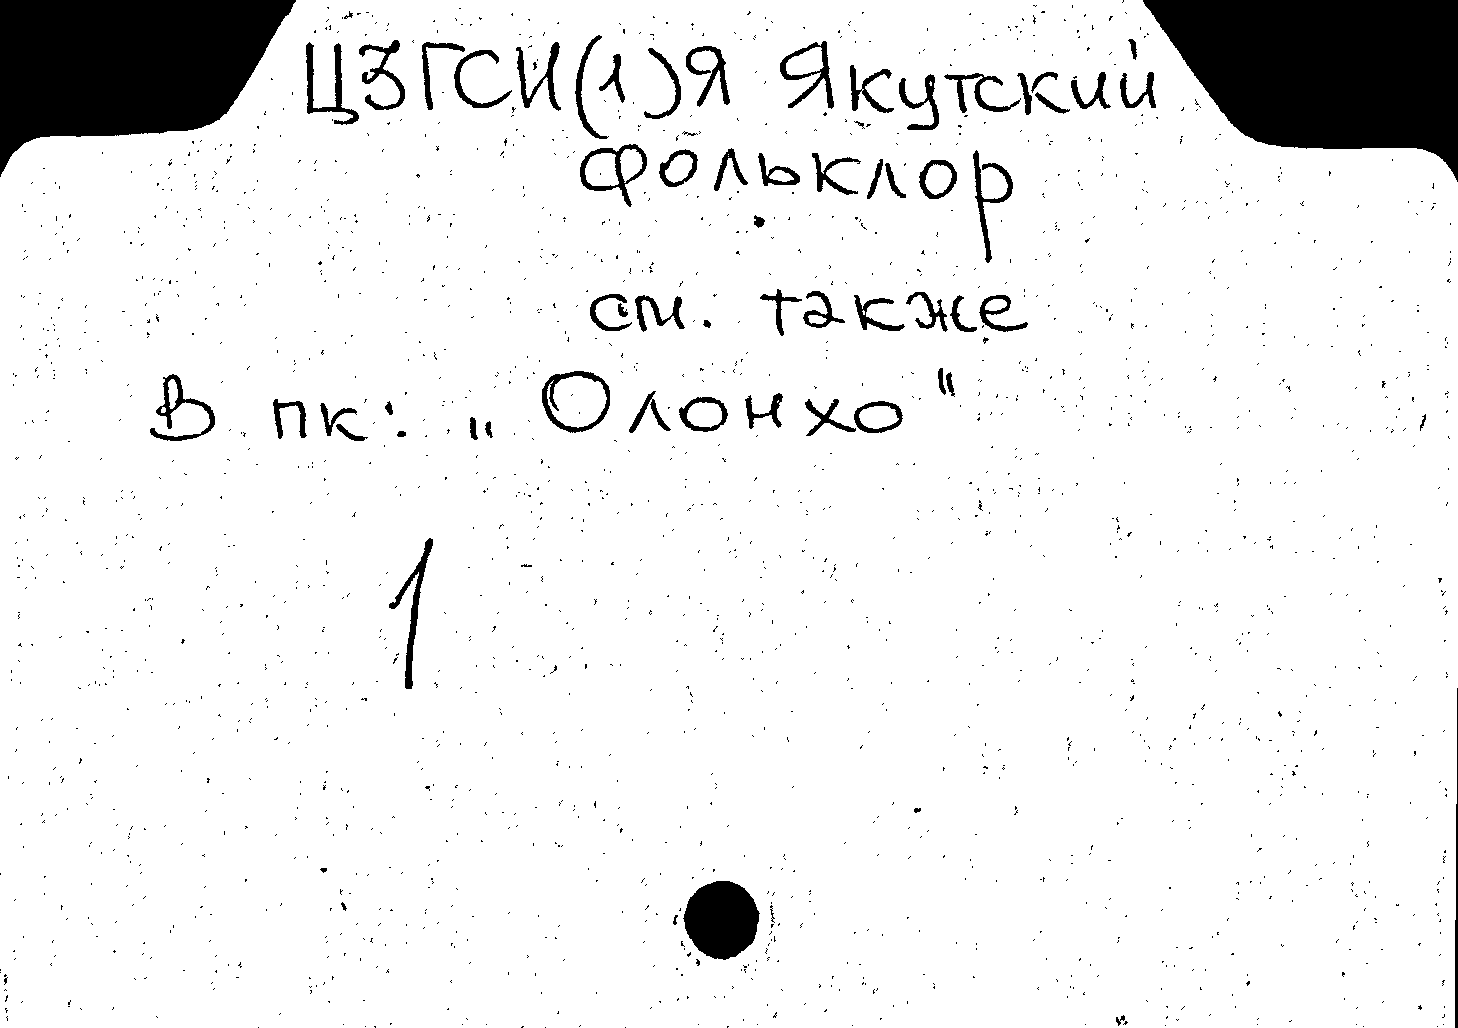 ЦЗГСИ(1)Я Якутский
фольклор
см. также
В пк: „Олонхо"
1